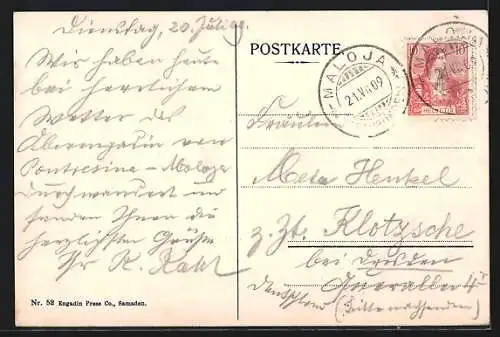 Dienstag, 20. Juli 09.
Wir haben heute
bei herrlichem
Wetter das
Oberengadin von
Pontresina – Maloja
durchwandert und
senden Ihnen die
herzlichsten Grüße
Ihr R.
Nr. 52 Engadin Press Co., Samaden.
POSTKARTE.
MALOJA
21.VII.09
10 10
HELVETIA
Fräulein
Meta Henkel
z. Zt. Klotzsche
bei Dresden
Deutschland (Bitte nachsenden)